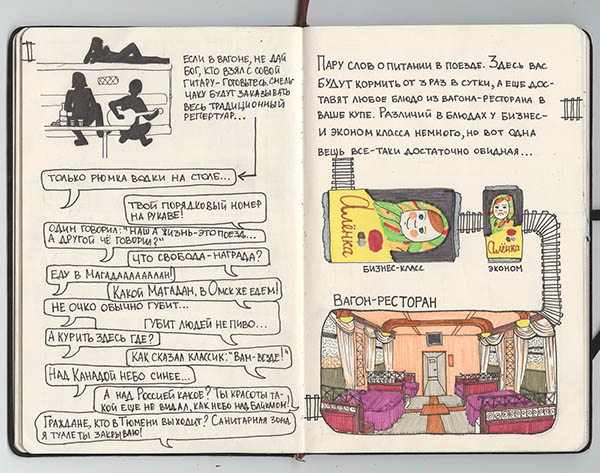 Если в вагоне, не дай
Бог, кто взял с собой
гитару-готовьтесь, смель-
чаку будут заказывать
весь традиционный
репертуар...
Только рюмка водки на столе...
Твой порядковый номер
на рукаве!
Один говорил: "Наша жизнь-это поезд...
А другой чё говорил?"
Что свобода-награда?
Еду в Магадааааалан!
Какой Магадан, в Омск же едем!
Не очко обычно губит...
Губит людей не пиво...
А курить здесь где?
Как сказал классик: "Вам-везде!"
Над Канадой небо синее...
А над Россией какое? Ты красоты та-
кой еще не видал, как небо над Байкалом!
Граждане, кто в Тюмени выходит? Санитарная зона,
я туалеты закрываю!
Пару слов о питании в поезде. Здесь вас
будут кормить от 3 раз в сутки, а еще дос-
тавят любое блюдо из вагона-ресторана в
ваше купе. Различий в блюдах у бизнес-
и эконом класса немного, но вот одна
вещь все-таки достаточно обидная...
Алёнка
Алёнка
Бизнес-класс
Эконом
Вагон-ресторан